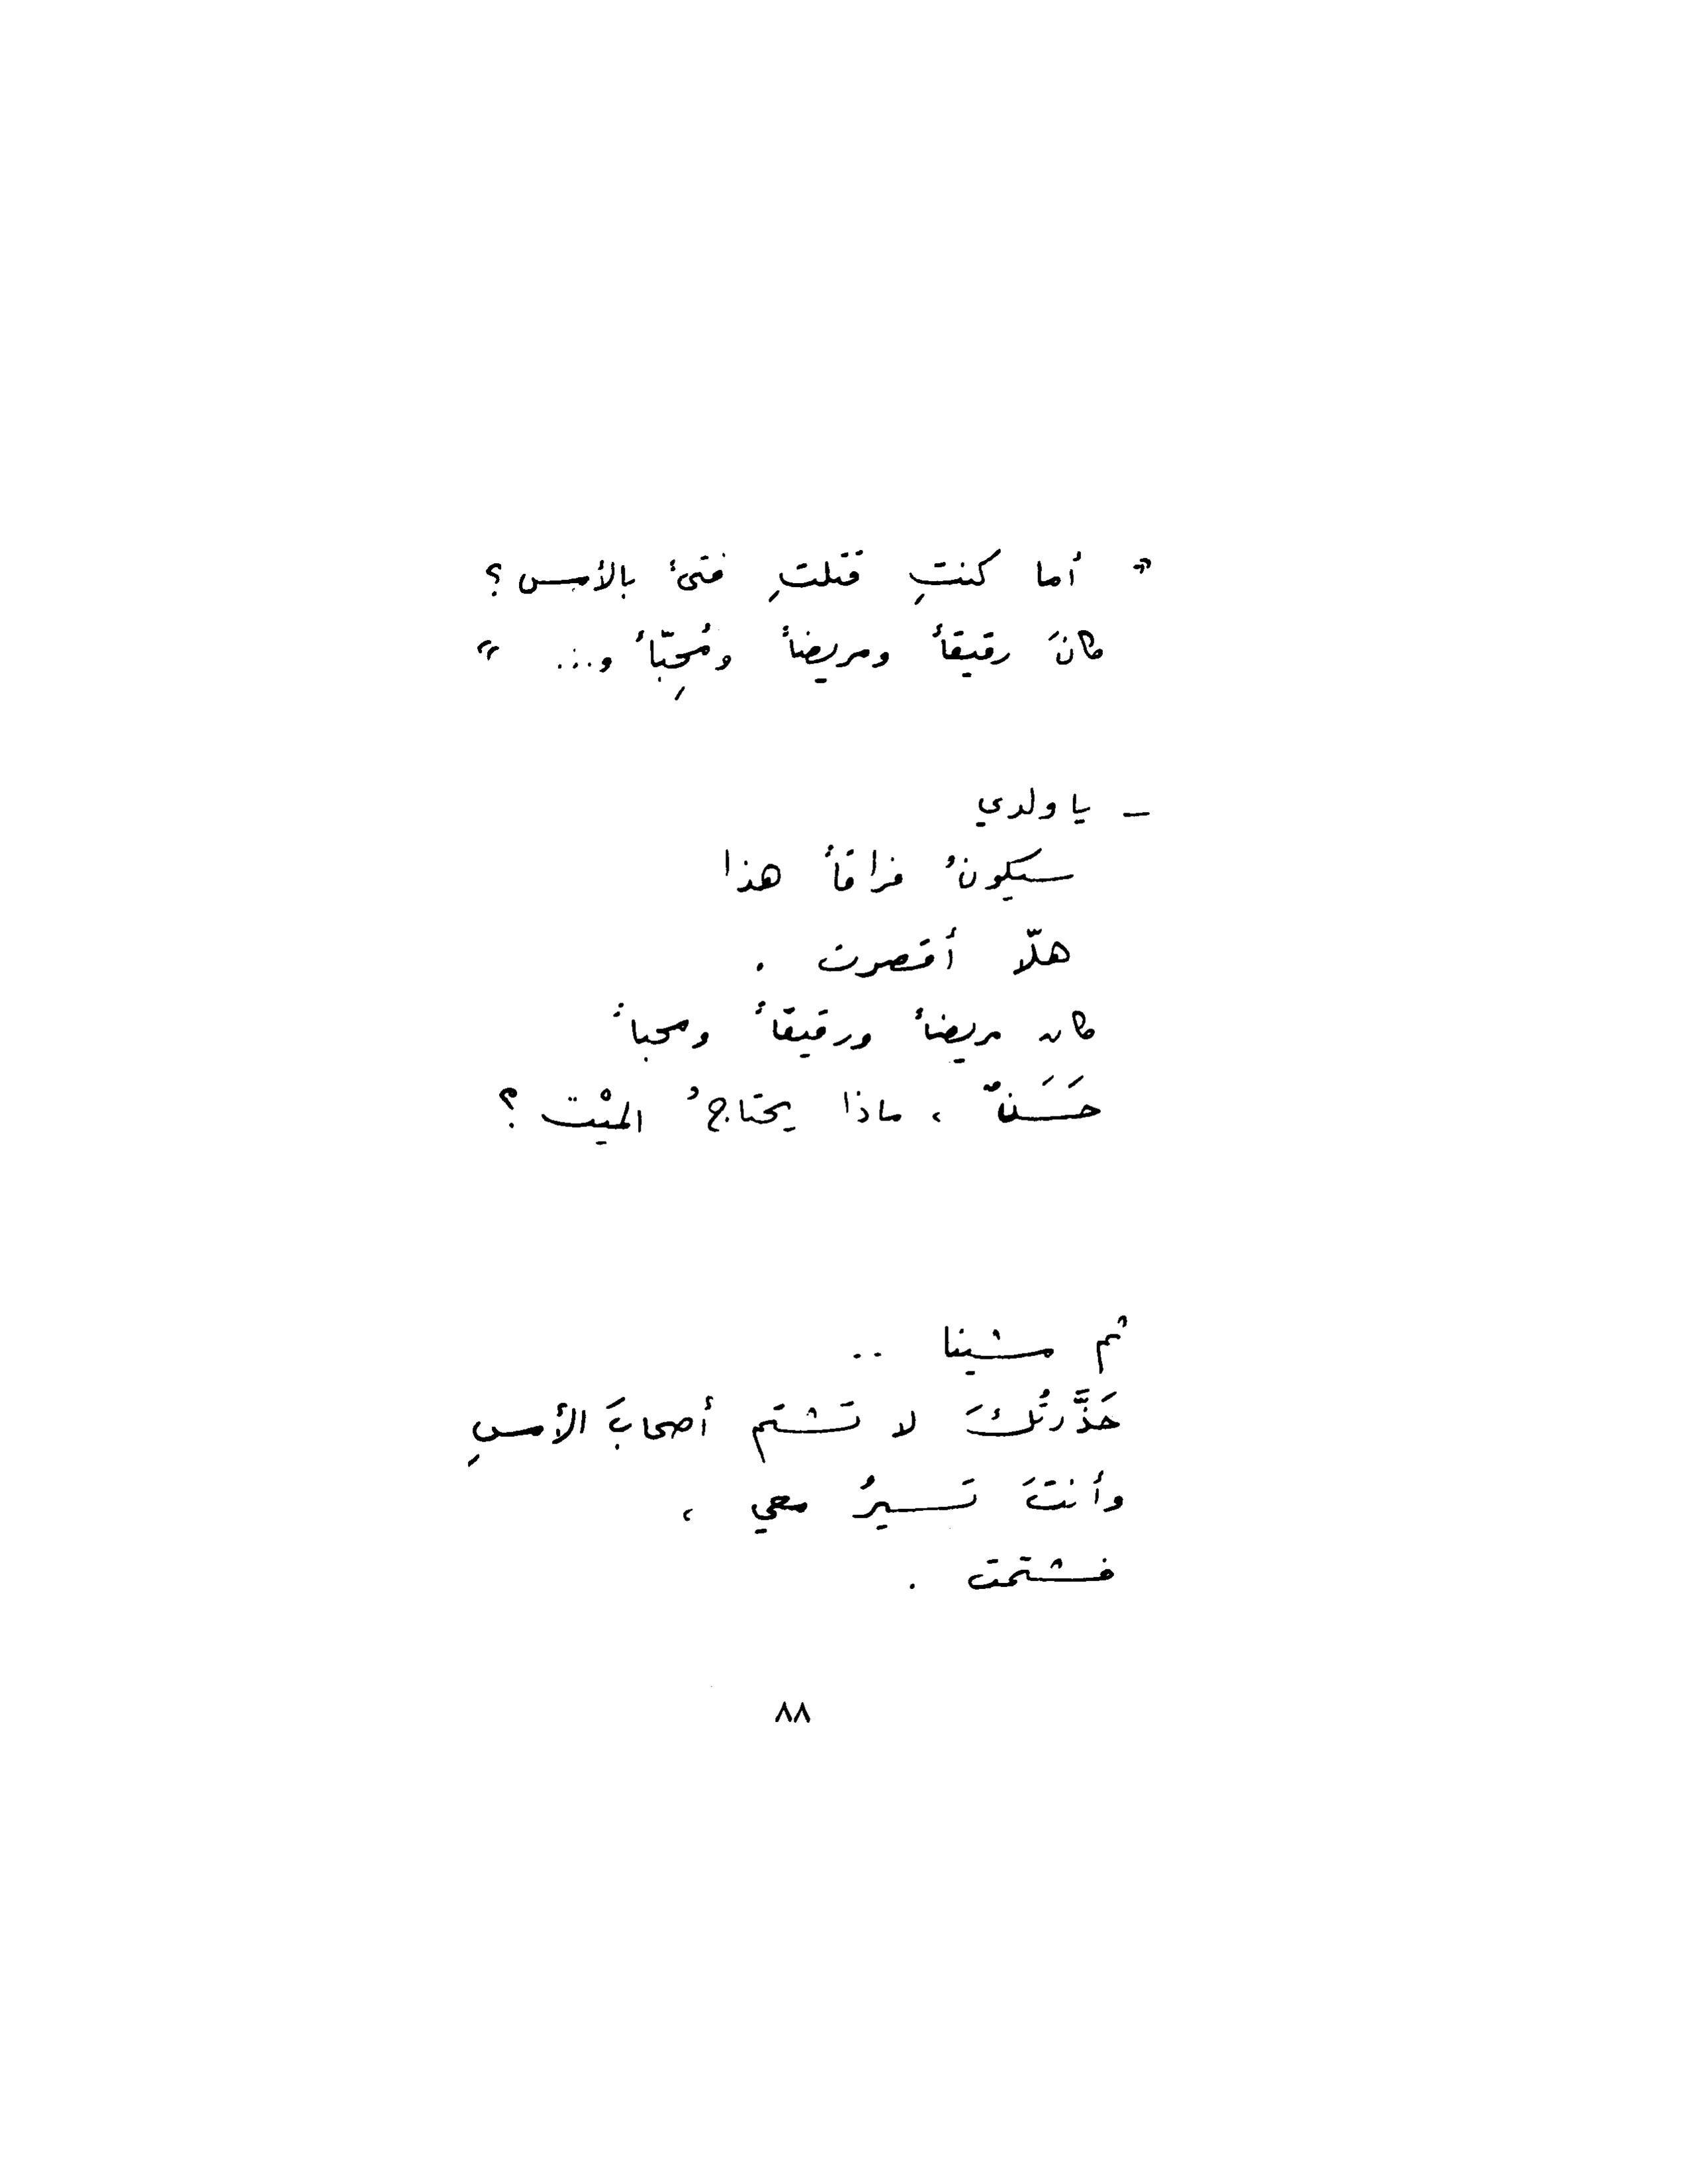 " أما كنتِ قتلتِ فتىً بالأمس ؟
كانَ رقيقاً ومريضاً ومُحِبّاً و... "
– يا ولدي
سيكونُ فراقاً هذا
هلّا أقصرت .
كان مريضاً ورقيقاً ومحباً
حَسَنٌ ، ماذا يحتاجُ الميْت ؟
ثم مشينا ..
حَذَّرتُكَ لا تَشتم أصحابَ الأمسِ
وأنتَ تَسيرُ معي ،
فشتمت .
٨٨